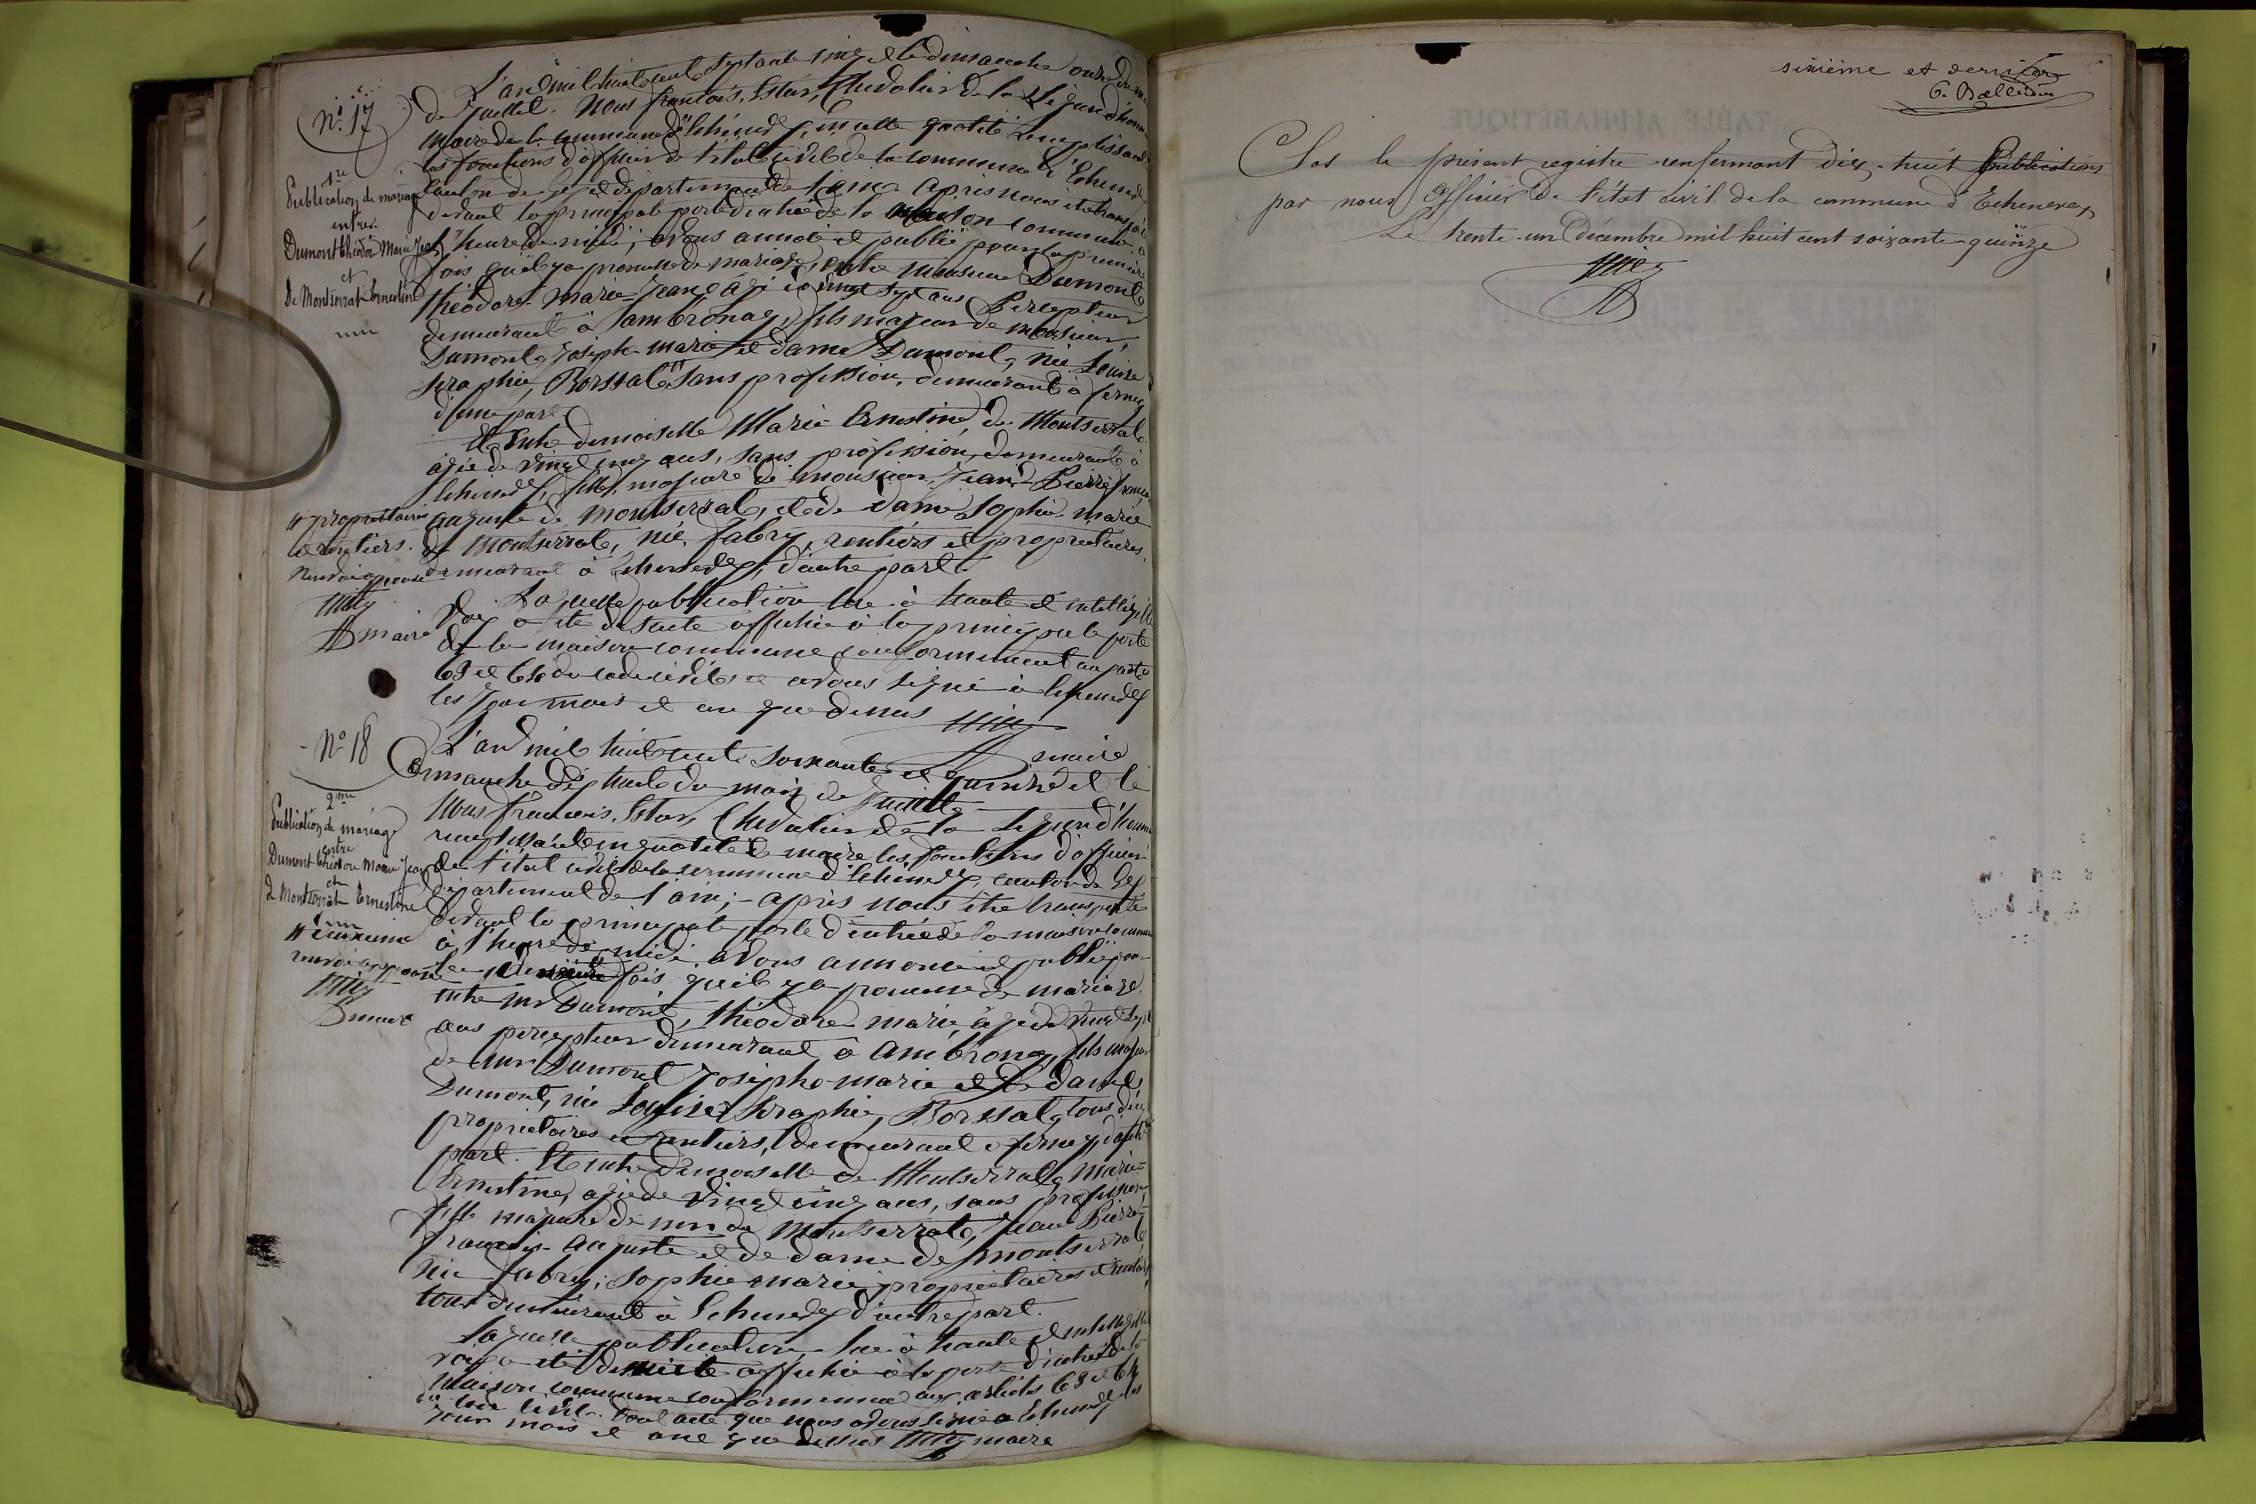 N° 17
1re
Publication de mariage
entre
Dumont Théodore Marie Jean
et
De Montserrat Ernestine
L'an mil huit cent septante cinq et le dimanche onze du mois
de Juillet. Nous françois, Chevalier de la Légion d'honneur
maire de la commune d'Echenevex, en cette qualité remplissant
les fonctions d'officier de l'état civil de la commune d'Echenevex
canton de Gex et département de l'ain. Après nous être transporté
devant la principale porte d'entrée de la maison commune à
l'heure de midi, avons annoncé et publié pour la première
fois qu'il y a promesse de mariage, entre monsieur Dumont
théodore marie Jean, âgé de vingt sept ans Percepteur
demeurant à ambronay, fils majeur de monsieur
Dumont, Joseph marie et dame Dumont, née Louise
Séraphie, Borssat " sans profession, demeurant à ferney
d'une part
Et Entre demoiselle Marie Ernestine, de Montserrat
âgée de vingt cinq ans, sans profession, demeurant à
Echenevex, fille majeure de monsieur, Jean Pierre françois
auguste de montserrat, et de dame Sophie marie
de montserrat, née, fabry, rentiers et propriétaires,
demeurant à Echenevex, d'autre part.
" propriétaires
et rentiers.
Renvoi approuvé
maire
Laquelle publication lue à haute et intelligible
voix a été de suite affichée à la principale porte
de la maison commune conformément aux articles
63 et 64 du code civil et avons signé à Echenevex
les jour mois et an que dessus
maire
N° 18
2me
Publication de mariage
entre
Dumont théodore Marie Jean
et
de Montserrat Ernestine
L'an mil huit cent soixante et quinze et le
Dimanche dix huit du mois de Juillet
Nous françois, Chevalier de la Légion d'honneur
remplissant en qualité de maire les fonctions d'officier
de l'état civil de la commune d'Echenevex, canton de Gex
département de l'ain; - après nous être transporté
devant la principale porte d'entrée de la maison commune
à l'heure de midi, avons annoncé et publié pour
la fois qu'il y a promesse de mariage
entre mr Dumont, théodore marie, âgé de vingt sept
ans percepteur demeurant à ambronay, fils majeur
de mr Dumont Joseph marie et de dame
Dumont, née Louise Séraphie, Borssat, tous deux
propriétaires et rentiers, demeurant à ferney, d'une
part. Et entre demoiselle de Montserrat, marie
Ernestine, agée de vingt cinq ans, sans profession
fille majeure de mr de montserrat, Jean Pierre
françois auguste et de dame de montserrat
née fabry, Sophie marie, propriétaires et rentiers
tous demeurant à Echenevex d'autre part.
" deuxieme
renvoi approuvé
maire
Laquelle publication lue à haute et intelligible
voix a été de suite affichée à la porte d'entrée de la
maison commune conformément aux articles 63 et 64
du code civil. Dont acte que nous avons signé à Echenevex les
jour mois et an que dessus maire
sixième et dernier
Clos le présent registre renfermant dix-huit Publications
par nous Officier de l'état civil de la commune d'Echenevex,
Le trente-un Décembre mil huit cent soixante-quinze